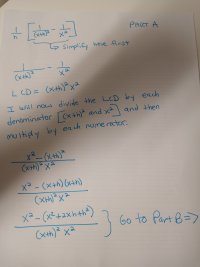 PART A
1/h [ 1/(x+h)² - 1/x² ]
↳ simplify here first
1/(x+h)² - 1/x²
LCD = (x+h)² x²
I will now divide the LCD by each
denominator [(x+h)² and x²] and then
multiply by each numerator.
x² - (x+h)² / (x+h)² x²
x² - (x+h)(x+h) / (x+h)² x²
x² - (x²+2xh+h²) / (x+h)² x² } Go to Part B =>